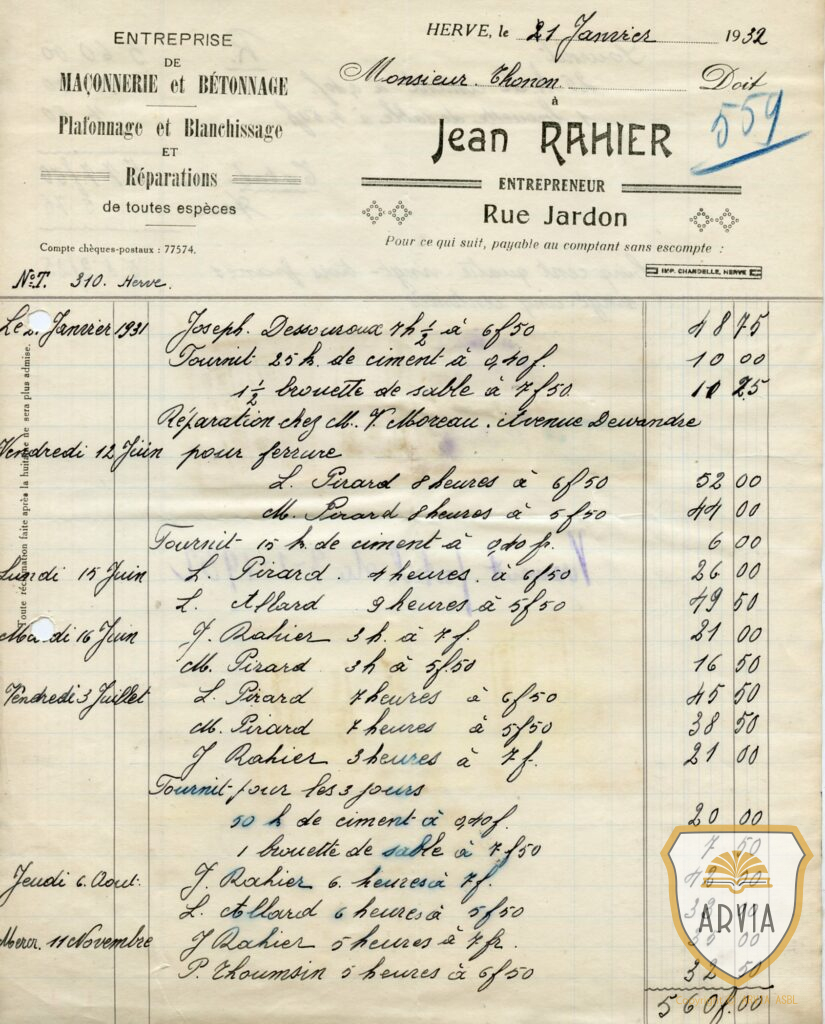 ENTREPRISE
DE
MAÇONNERIE et BÉTONNAGE
Plafonnage et Blanchissage
ET
Réparations
de toutes espèces
Compte chèques-postaux : 77574.
N°T. 310. Herve.
HERVE, le 21 Janvier 1932
Monsieur Thonon Doit
à
559
Jean RAHIER
ENTREPRENEUR
Rue Jardon
Pour ce qui suit, payable au comptant sans escompte :
IMP. CHANDELLE, HERVE
Toute réclamation faite après la huitaine ne sera plus admise.
Le Janvier 1931 Joseph Dessouroux 7h ½ à 6f50 48 75
Fournit 25 k. de ciment à 0,40 f. 10 00
1 ½ brouette de sable à 7f50. 25
Réparation chez M. V. Moreau. Avenue Dewandre
Vendredi 12 Juin pour ferrure
L. Pirard 8 heures à 6f50 52 00
M. Pirard 8 heures à 5f50 44 00
Fournit 15 k. de ciment à 0,40 fr. 6 00
Lundi 15 Juin L. Pirard. 4 heures. à 6f50 26 00
L. Allard 9 heures à 5f50 49 50
Mardi 16 Juin J. Rahier 3 h. à 7 f. 21 00
M. Pirard 3h à 5f.50 16 50
Vendredi 3 Juillet L. Pirard 7 heures à 6f50 45 50
M. Pirard 7 heures à 5f50 38 50
J Rahier 3 heures à 7 f. 21 00
Fournit pour les 3 jours
50 k de ciment à 0,40 f. 20 00
1 brouette de sable à 7.f50 7 50
Jeudi 6. Aout. J. Rahier 6. heures à 7 f. 00
L. Allard 6 heures à 5f50
Mercr. 11 Novembre J Rahier 5 heures à 7 fr. 00
P. Thoumsin 5 heures à 6f50 32 50
560f.00
ARVIA
ASBL